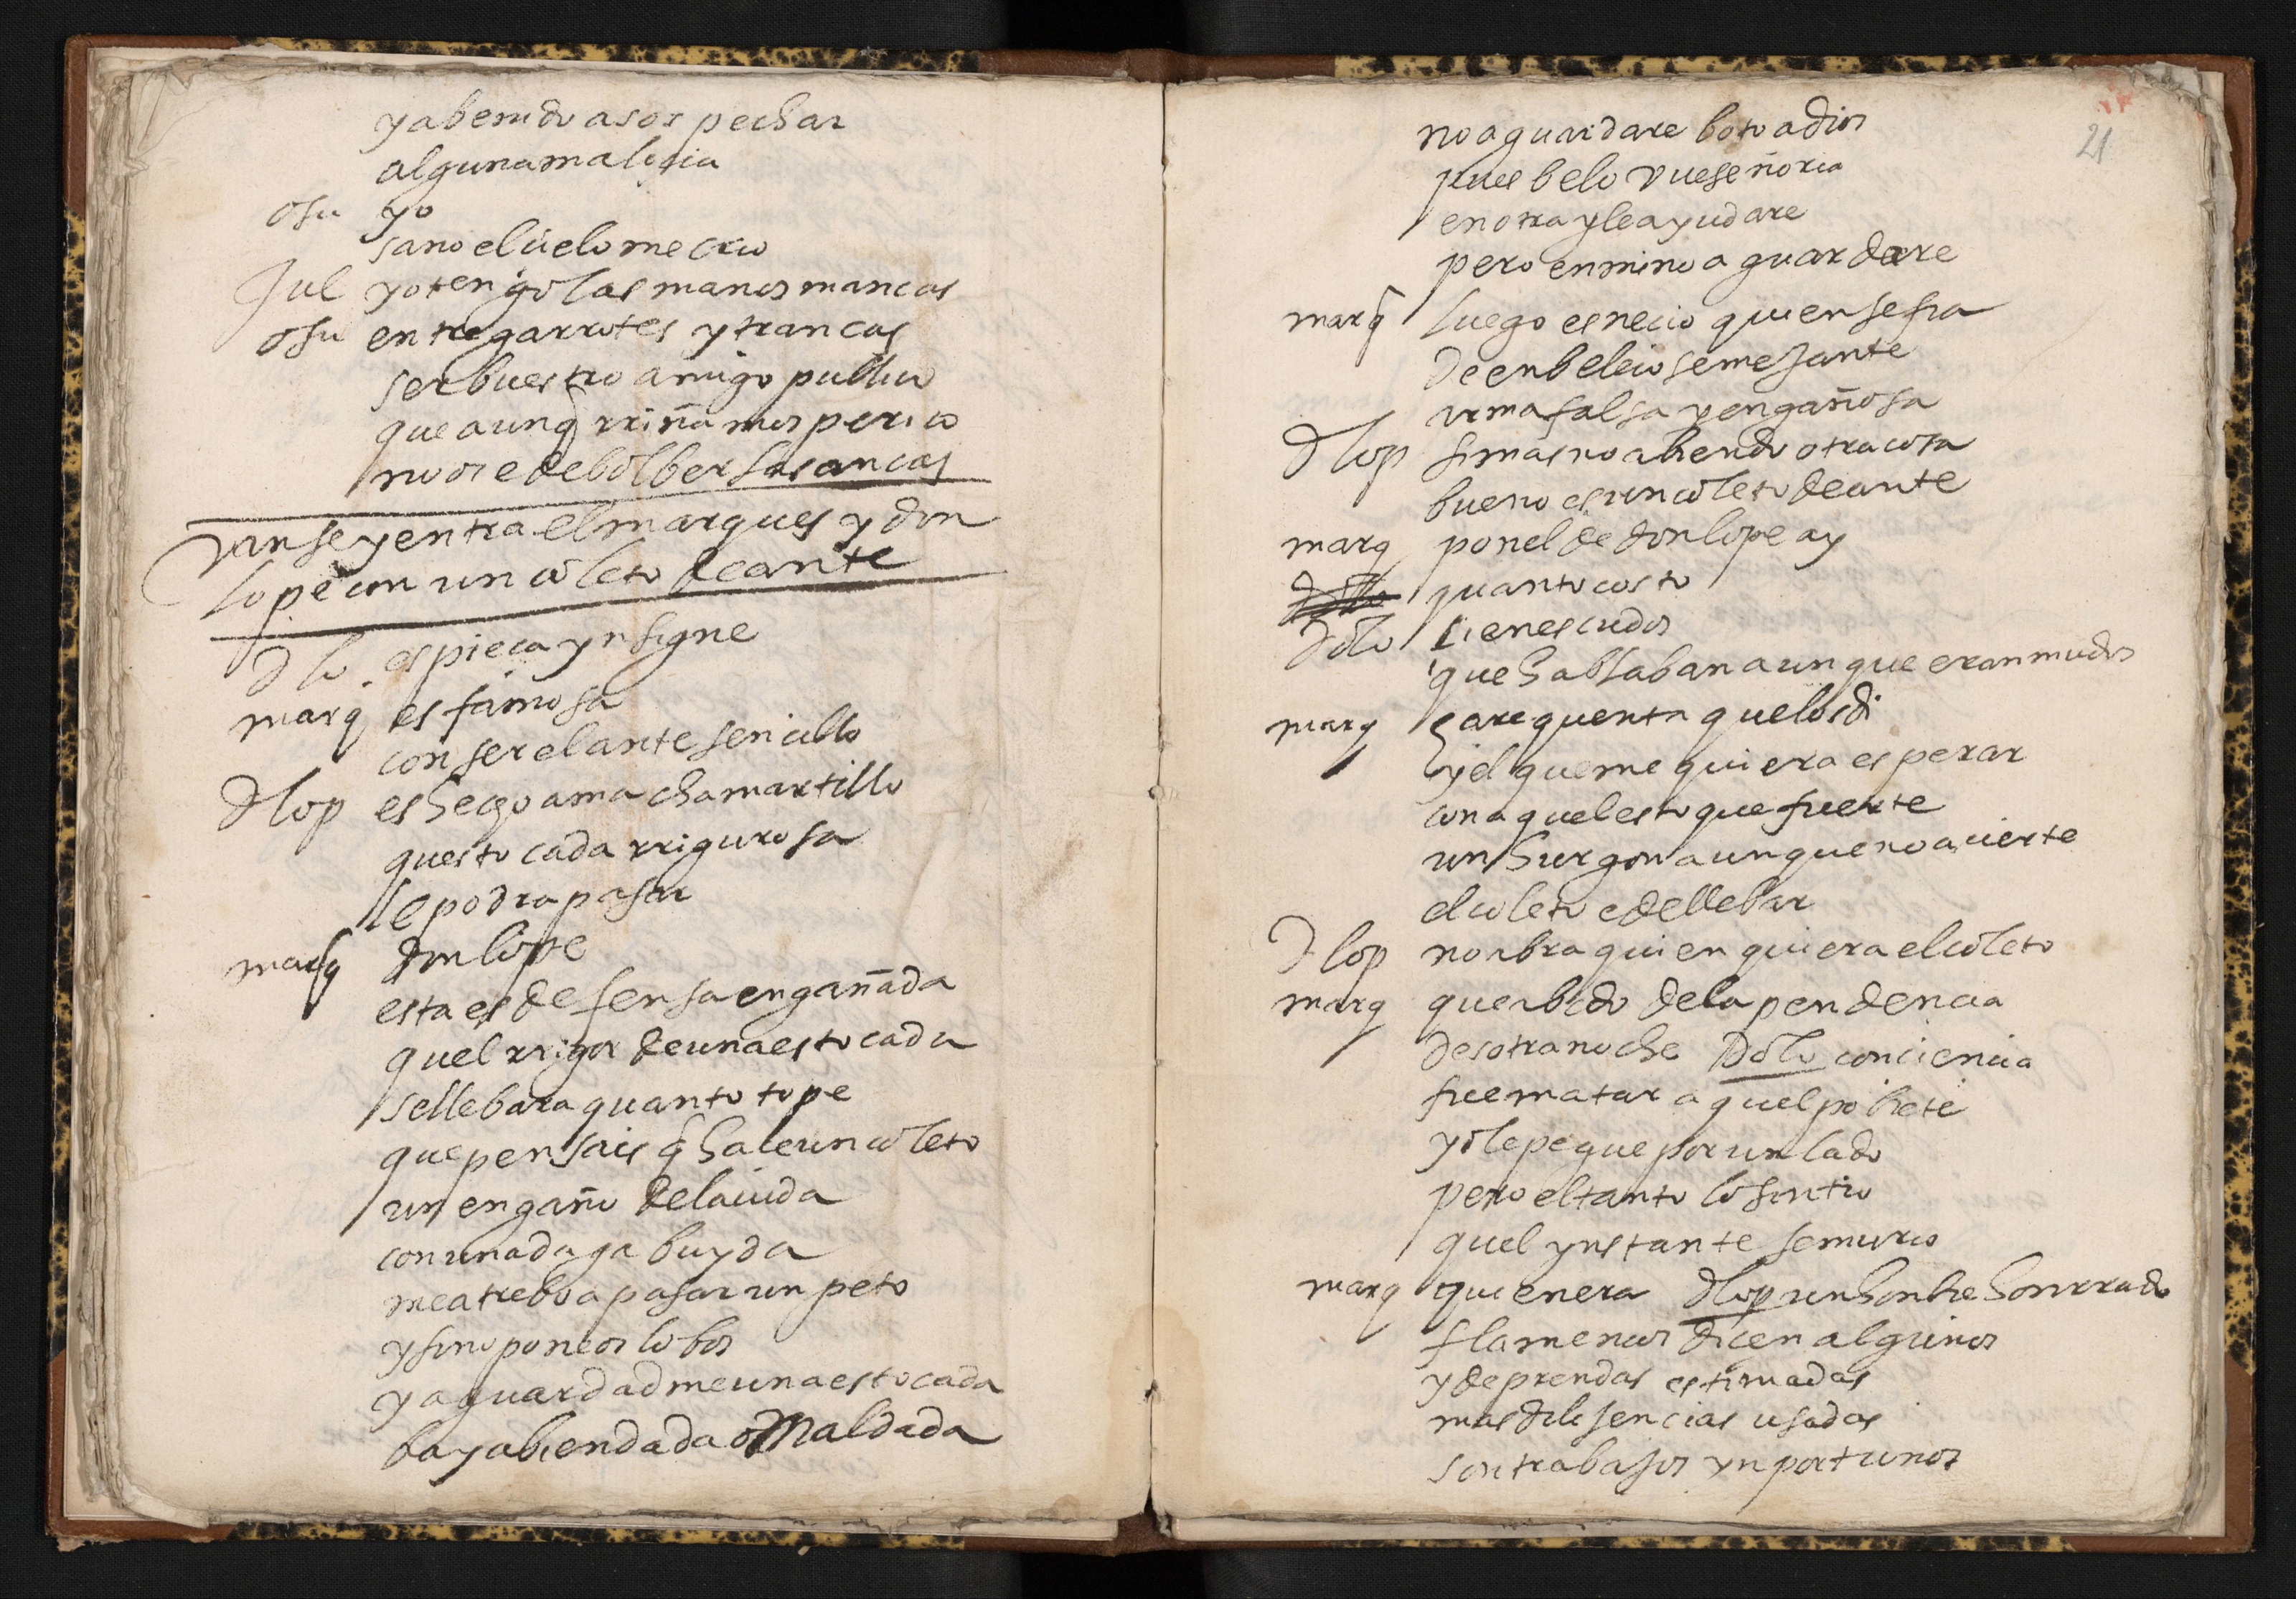 y a benido a sospechar
alguna malicia
osu yo
sano el cielo me crio
Jul yo tengo las manos mancas
osu entre garrotes y trancas
ser buestro amigo publico
que aunq rriñamos perico
no os e de bolber las ancas
vanse y entra el marques y don
lope con un coleto de ante
d lo es pieça ynsigne
marq es famosa
con ser el ante sencillo
d lop es hecho a macha martillo
questocada rrigurosa
le podra pasar
marq don lope
esta es defensa engañada
quel rrigor de una estocada
se llebara quanto tope
que pensais q hace un coleto
un engaño de la vida
con una daga buyda
me atrebo a pasar un peto
y sino poneos lo bos
y aguardadme una estocada
baya bien dada o mal dada
21
no aguardare boto a dios
pues belo vueseñoria
en otra y le ayudare
pero en mi no aguardare
marq luego es necio quien se fia
de enbeleco semejante
arma falsa y engañosa
d lop si mas no abiendo otra cosa
bueno es un coleto de ante
marq ponelde don lope ay
quanto costo
do lo cien escudos
que hablaban aunque eran mudos
marq hare quenta que los di
y el que me quiera esperar
con aquel estoque fuerte
un hurgon aunque no acierte
el coleto e de llebar
d lop no abra quien quiera el coleto
marq que abido de la pendencia
desotra noche do lo conciencia
fue matar aquel pobrete
yo le pegue por un lado
pero el tanto lo sintio
quel ynstante se murio
marq quien era d lop un honbre honrrado
flamencos dicen algunos
y de prendas estimadas
mas dilijencias usadas
son trabajos ynportunos